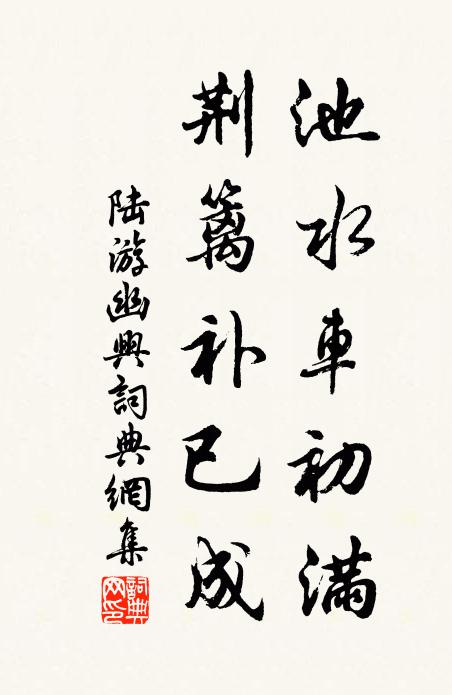 池水車初满
荆篱补已成
陆游幽興詞典網集
詞典网印